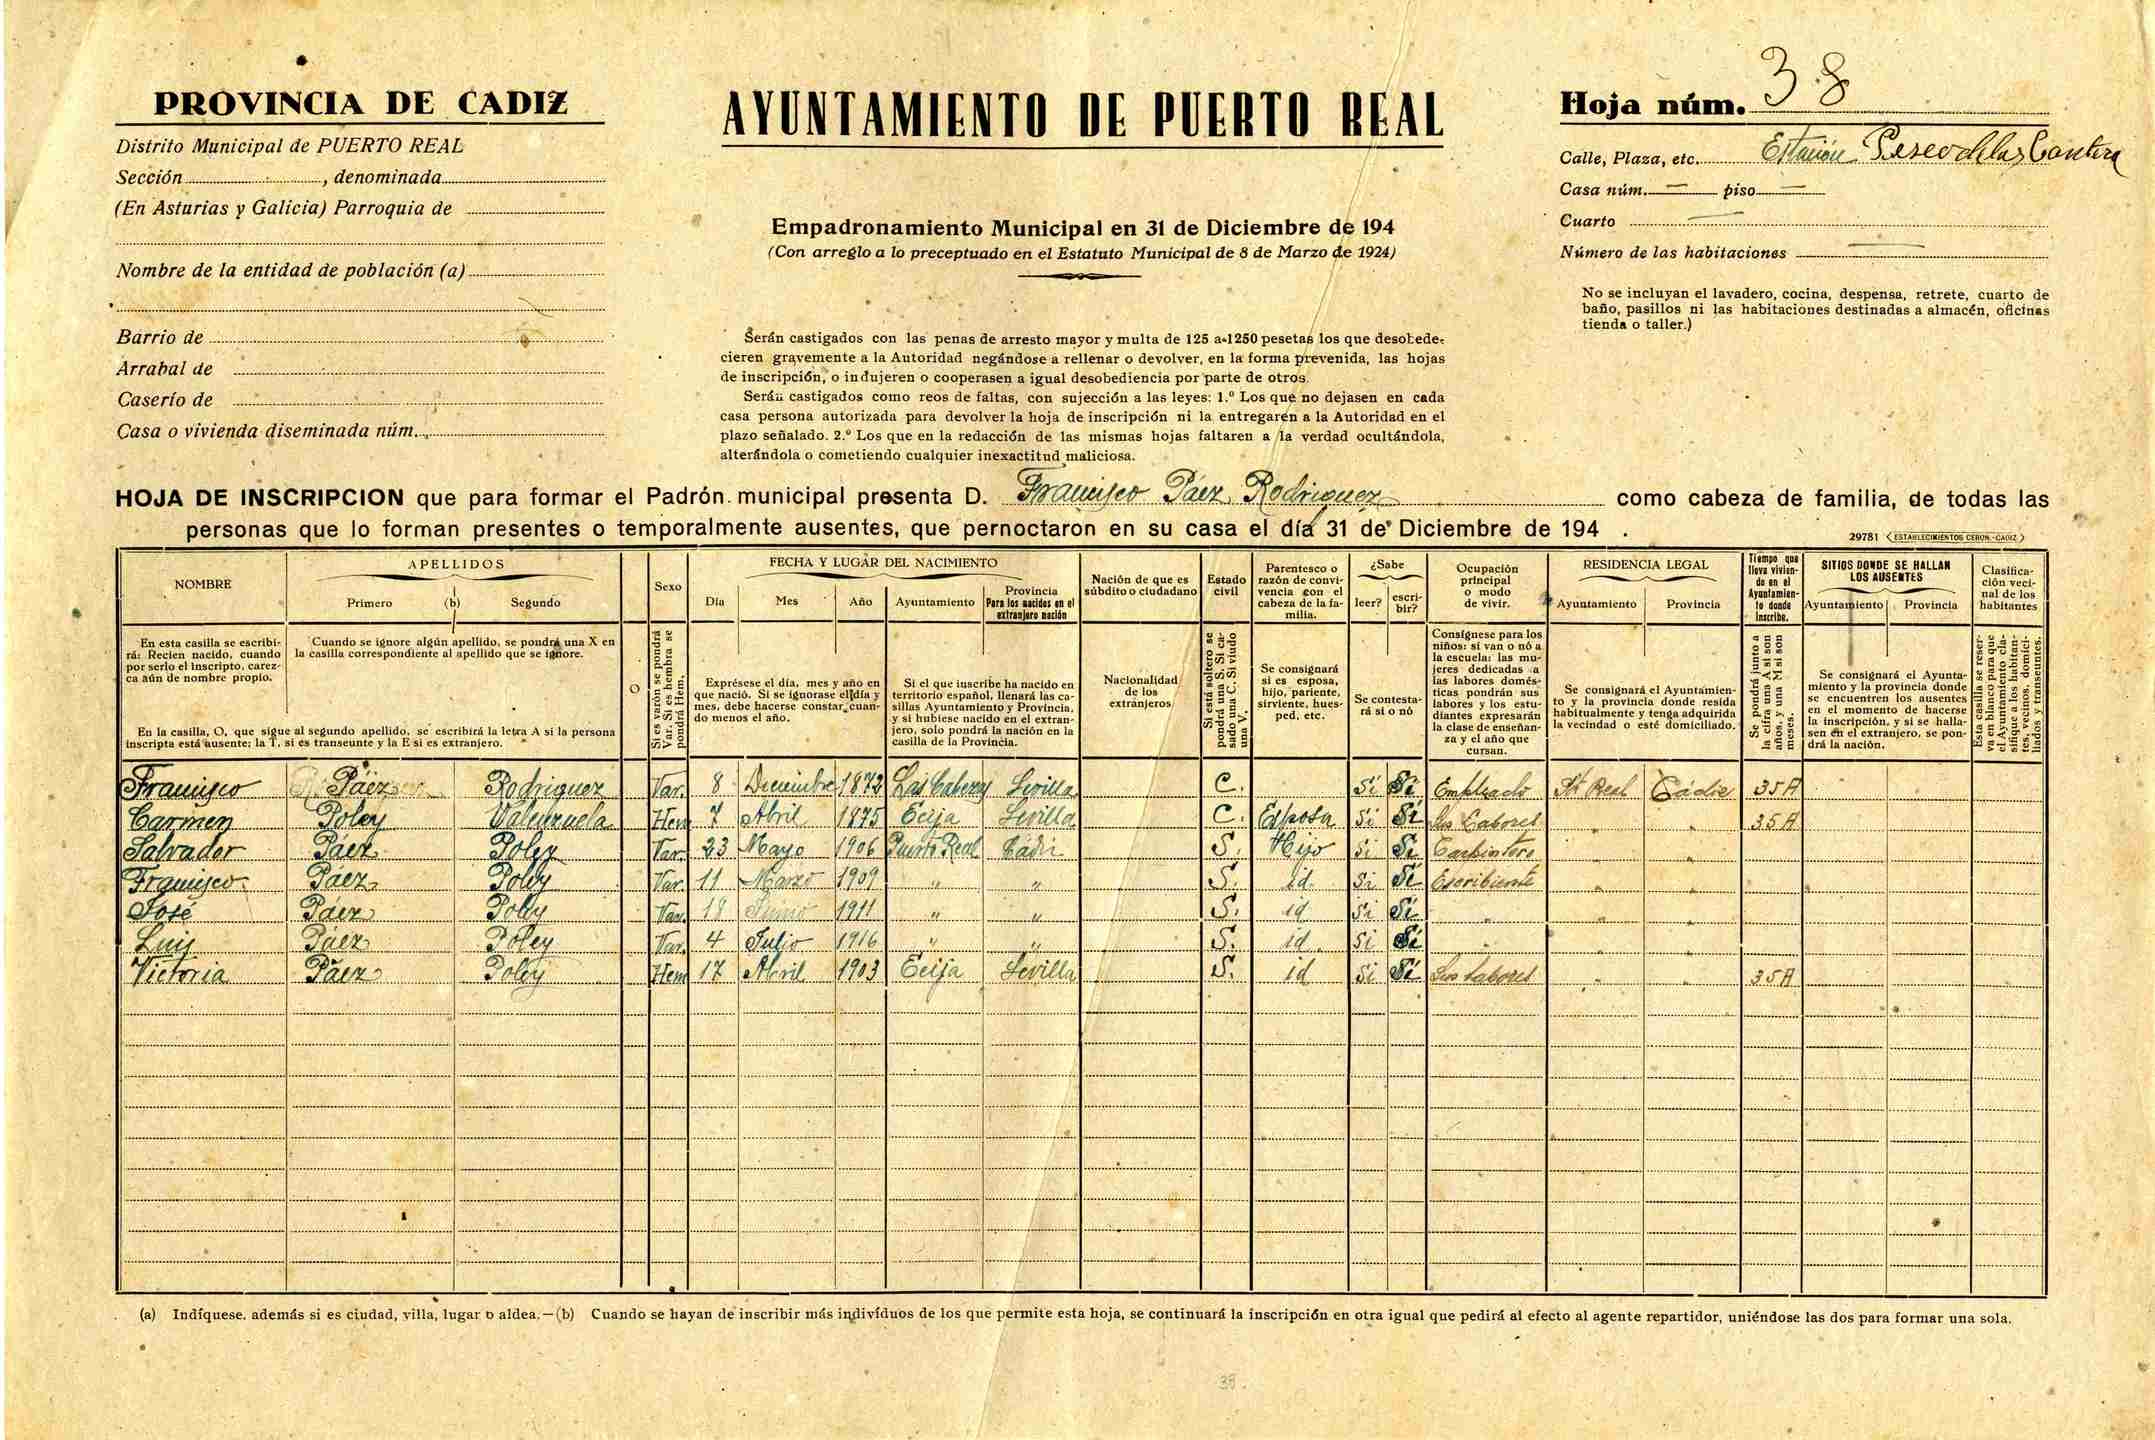 PROVINCIA DE CADIZ
Distrito Municipal de PUERTO REAL
Sección , denominada
(En Asturias y Galicia) Parroquia de
Nombre de la entidad de población (a)
Barrio de
Arrabal de
Caserío de
Casa o vivienda diseminada núm.
AYUNTAMIENTO DE PUERTO REAL
Empadronamiento Municipal en 31 de Diciembre de 194
(Con arreglo a lo preceptuado en el Estatuto Municipal de 8 de Marzo de 1924)
Serán castigados con las penas de arresto mayor y multa de 125 a 1250 pesetas los que desobede-
cieren gravemente a la Autoridad negándose a rellenar o devolver, en la forma prevenida, las hojas
de inscripción, o indujeren o cooperasen a igual desobediencia por parte de otros.
Serán castigados como reos de faltas, con sujección a las leyes: 1.º Los que no dejasen en cada
casa persona autorizada para devolver la hoja de inscripción ni la entregaren a la Autoridad en el
plazo señalado. 2.º Los que en la redacción de las mismas hojas faltaren a la verdad ocultándola,
alterándola o cometiendo cualquier inexactitud maliciosa.
Hoja núm. 38
Calle, Plaza, etc. Estación Paseo de las Cantera
Casa núm. — piso —
Cuarto —
Número de las habitaciones —
No se incluyan el lavadero, cocina, despensa, retrete, cuarto de
baño, pasillos ni las habitaciones destinadas a almacén, oficinas
tienda o taller.)
HOJA DE INSCRIPCION que para formar el Padrón municipal presenta D. Francisco Páez Rodriguez como cabeza de familia, de todas las
personas que lo forman presentes o temporalmente ausentes, que pernoctaron en su casa el día 31 de Diciembre de 194 .
29781 (ESTABLECIMIENTOS CERON.-CADIZ)
NOMBRE
APELLIDOS
Primero (b) Segundo
Sexo
FECHA Y LUGAR DEL NACIMIENTO
Día Mes Año Ayuntamiento
Provincia
Para los nacidos en el
extranjero nación
Nación de que es
súbdito o ciudadano
Estado
civil
Parentesco o
razón de convi-
vencia con el
cabeza de la fa-
milia.
¿Sabe
leer? escri-
bir?
Ocupación
principal
o modo
de vivir.
RESIDENCIA LEGAL
Ayuntamiento Provincia
Tiempo que
lleva vivien-
do en el
Ayuntamien-
to donde
inscribe.
SITIOS DONDE SE HALLAN
LOS AUSENTES
Ayuntamiento Provincia
Clasifica-
ción veci-
nal de los
habitantes
En esta casilla se escribi-
rá: Recien nacido, cuando
por serlo el inscripto, carez-
ca aún de nombre propio.
Cuando se ignore algún apellido, se pondrá una X en
la casilla correspondiente al apellido que se ignore.
En la casilla, O, que sigue al segundo apellido, se escribirá la letra A si la persona
inscripta está ausente; la T, si es transeunte y la E si es extranjero.
O
Si es varón se pondrá
Var. Si es hembra se
pondrá Hem,
Exprésese el día, mes y año en
que nació. Si se ignorase el día y
mes, debe hacerse constar cuan-
do menos el año.
Si el que inscribe ha nacido en
territorio español, llenará las ca-
sillas Ayuntamiento y Provincia,
y si hubiese nacido en el extran-
jero, solo pondrá la nación en la
casilla de la Provincia.
Nacionalidad
de los
extranjeros
Si está soltero se
pondrá una S. Si ca-
sado una C. Si viudo
una V.
Se consignará
si es esposa,
hijo, pariente,
sirviente, hues-
ped, etc.
Se contesta-
rá si o nó
Consígnese para los
niños: si van o nó a
la escuela: las mu-
jeres dedicadas a
las labores domés-
ticas pondrán sus
labores y los estu-
diantes expresarán
la clase de enseñan-
za y el año que
cursan.
Se consignará el Ayuntamien-
to y la provincia donde resida
habitualmente y tenga adquirida
la vecindad o esté domiciliado.
Se pondrá junto a
la cifra una A si son
años, y una M si son
meses.
Se consignará el Ayunta-
miento y la provincia donde
se encuentren los ausentes
en el momento de hacerse
la inscripción, y si se halla-
sen en el extranjero, se pon-
drá la nación.
Esta casilla se reser-
va en blanco para que
el Ayuntamiento cla-
sifique a los habitan-
tes, vecinos, domici-
liados y transeuntes.
Francisco Páez Rodriguez Var. 8 Diciembre 1872 Las Cabezas Sevilla C. Si Si Empleado Pt Real Cádiz 35 A
Carmen Poley Valenzuela Hem 7 Abril 1875 Ecija Sevilla C. Esposa Si Si Sus Labores " " 35 A
Salvador Páez Poley Var. 23 Mayo 1906 Puerto Real Cádiz S. Hijo Si Si Carpintero " "
Francisco Páez Poley Var. 11 Marzo 1909 " " S. id. Si Si Escribiente " "
José Páez Poley Var. 18 Junio 1911 " " S. id Si Si " " "
Luis Páez Poley Var. 4 Julio 1916 " " S. id. Si Si " " "
Victoria Páez Poley Hem 17 Abril 1903 Ecija Sevilla S. id Si Si Sus Labores " " 35 A
(a) Indíquese, además si es ciudad, villa, lugar o aldea.—(b) Cuando se hayan de inscribir más indivíduos de los que permite esta hoja, se continuará la inscripción en otra igual que pedirá al efecto al agente repartidor, uniéndose las dos para formar una sola.